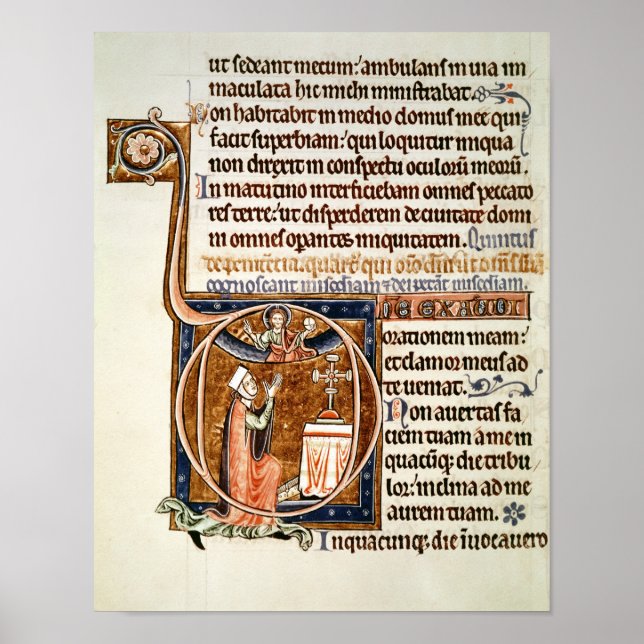 ut sedeant mecum: ambulans in uia im
maculata hic michi ministrabat.
Non habitabit in medio domus mee qui
facit superbiam: qui loquitur iniqua
non direxit in conspectu oculorū meorū.
In matutino interficiebam omnes peccato
res terre: ut disperderem de ciuitate domī
ni omnes operantes iniquitatem. Quintus
cognoscant
DNE EXAUDI
orationem meam:
et clamor meus ad
te ueniat.
Non auertas fa
ciem tuam a me in
quacūq; die tribu
lor: inclina ad me
aurem tuam.
In quacunq; die inuocauero